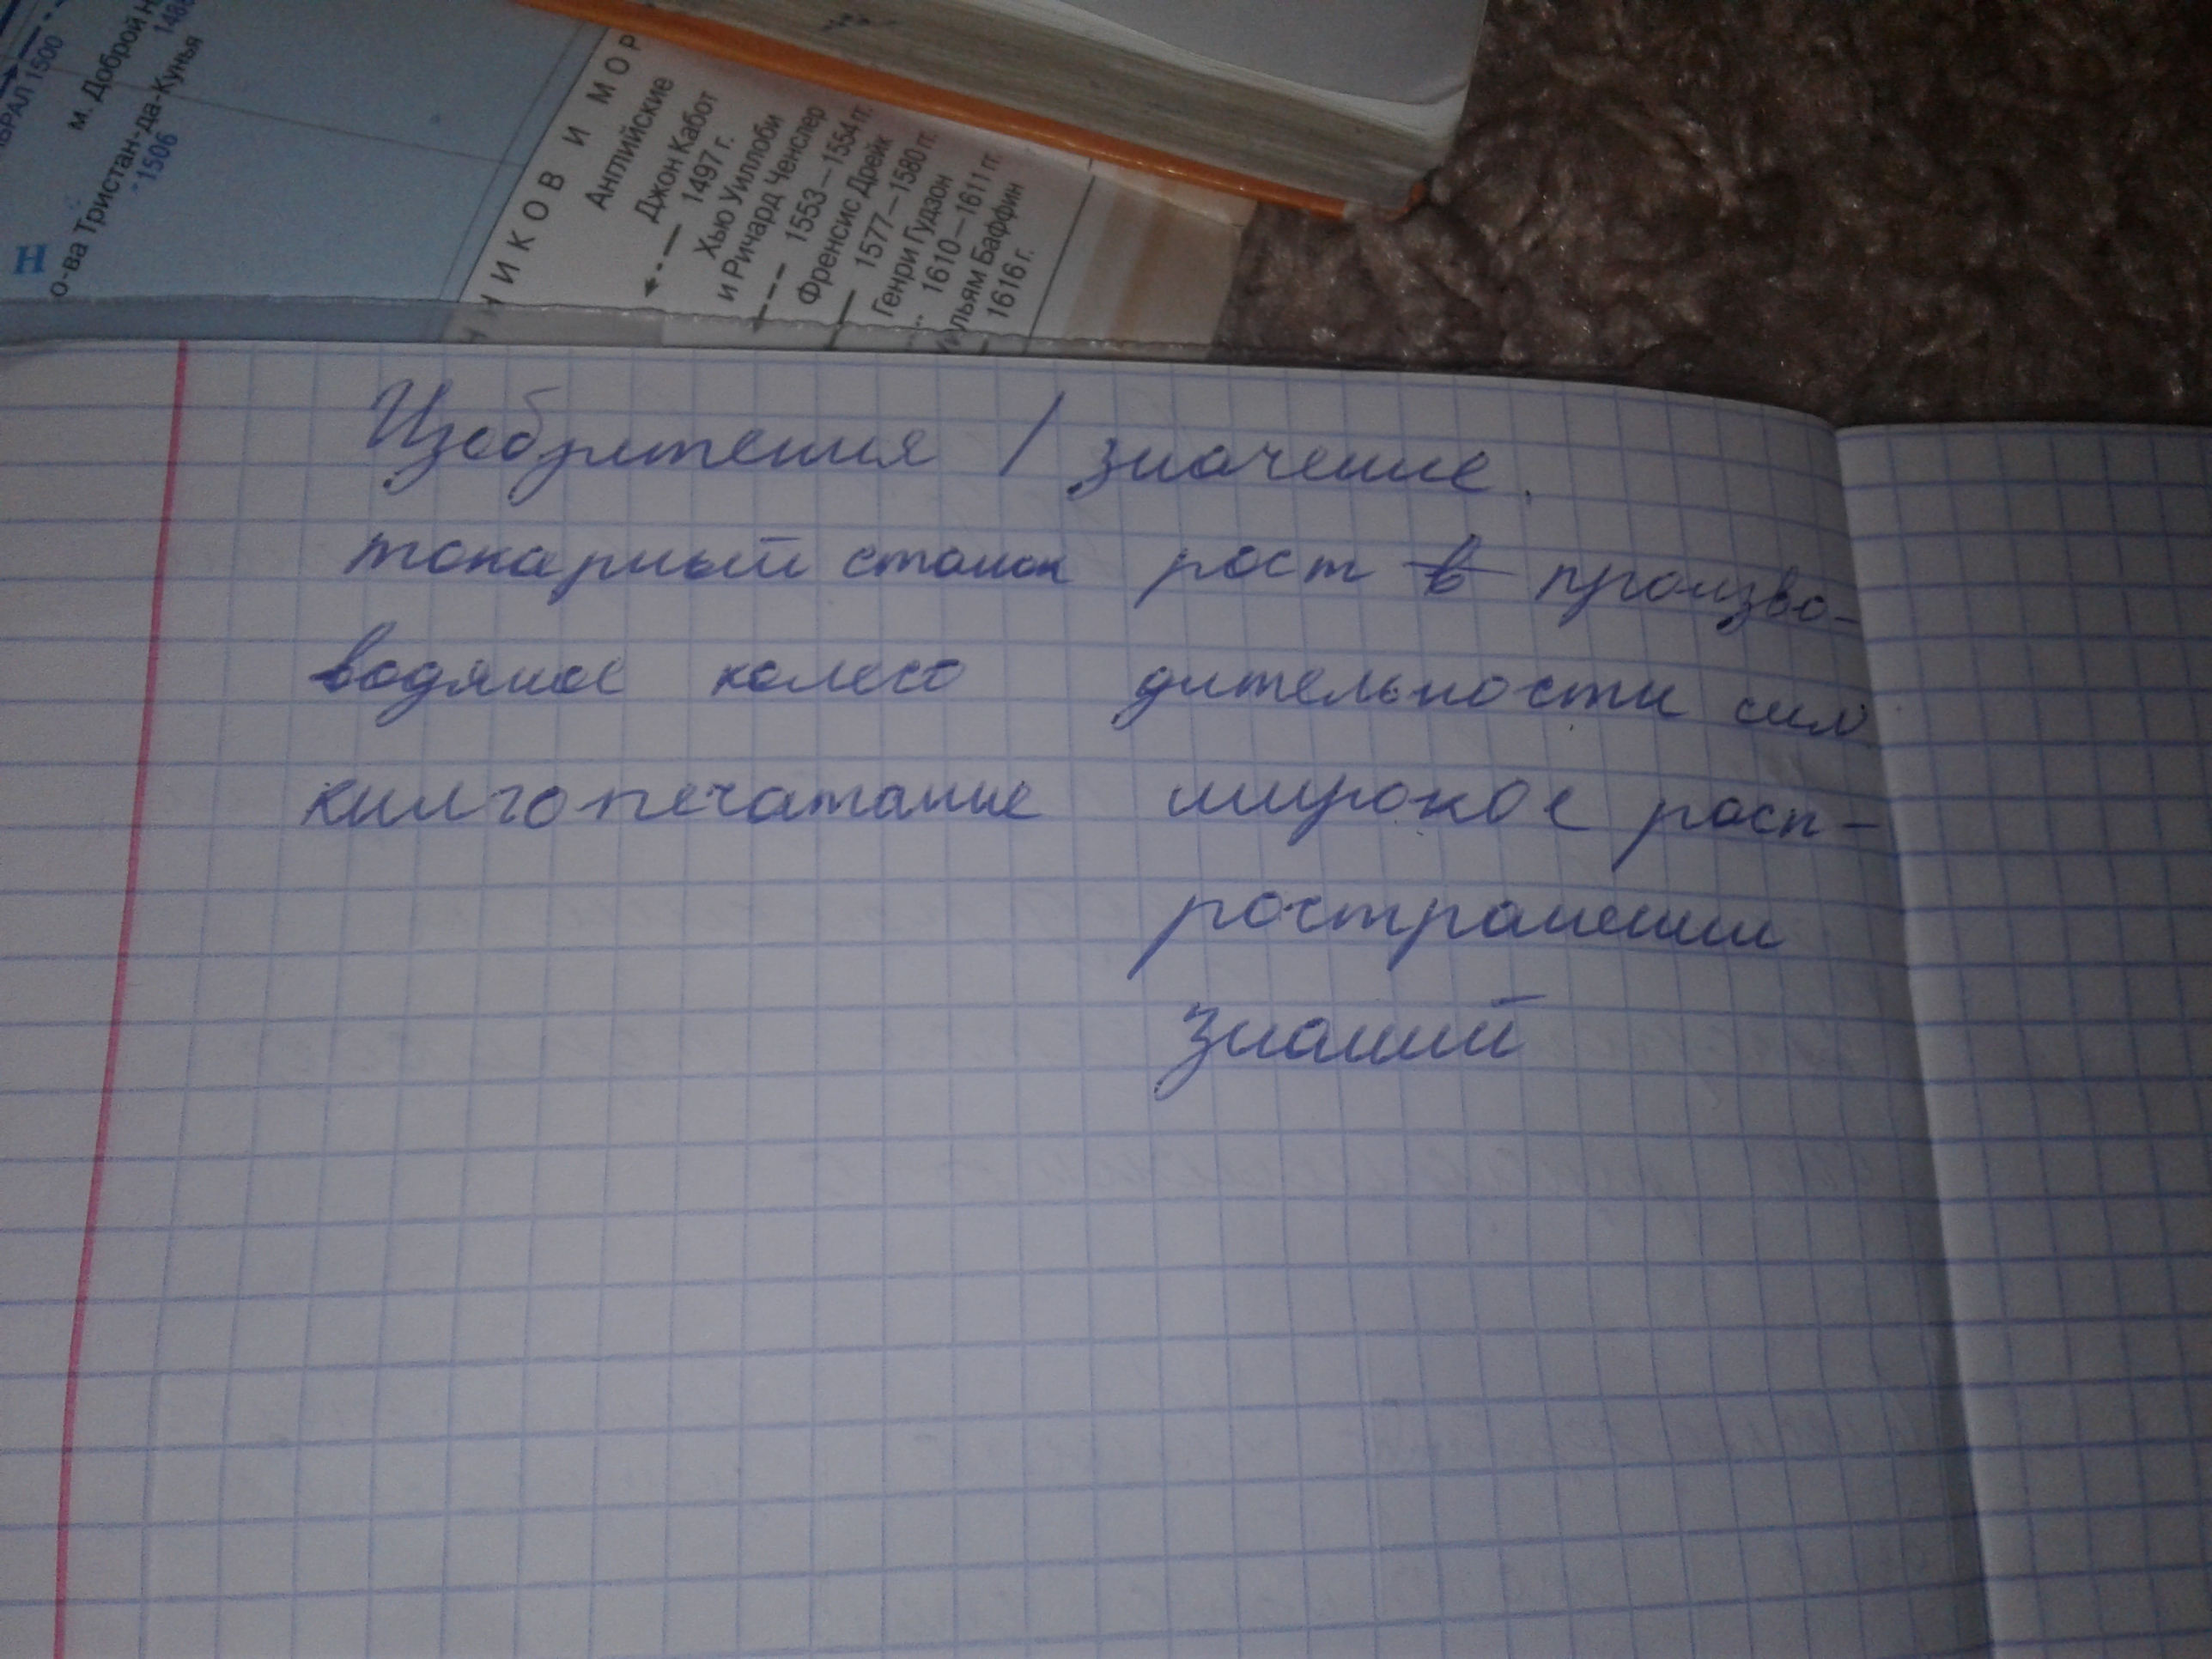 БРАЛ 1500
м. Доброй Н
1488
о-ва Тристан-да-Кунья
1506
Н
НИКОВ И МОР
Английские
Джон Кабот
1497 г.
Хью Уиллоби
и Ричард Ченслер
1553—1554 гг.
Френсис Дрейк
1577—1580 гг.
Генри Гудзон
1610—1611 гг.
Уильям Баффин
1616 г.
Изобритения / значение.
токарный станок рост в произво-
водяное колесо дительности сил
книгопечатание широкое расп-
ространении
знаний